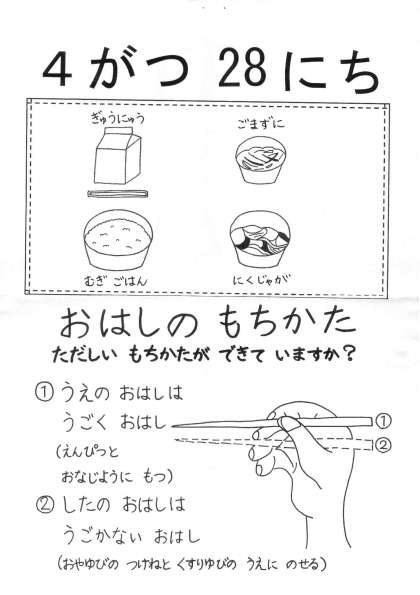 4がつ 28にち
ぎゅうにゅう
ごまずに
むぎ ごはん
にくじゃが
おはしの もちかた
ただしい もちかたが できて いますか?
① うえの おはしは
うごく おはし
(えんぴつと
おなじように もつ)
② したの おはしは
うごかない おはし
(おやゆびの つけねと くすりゆびの うえに のせる)
①
②